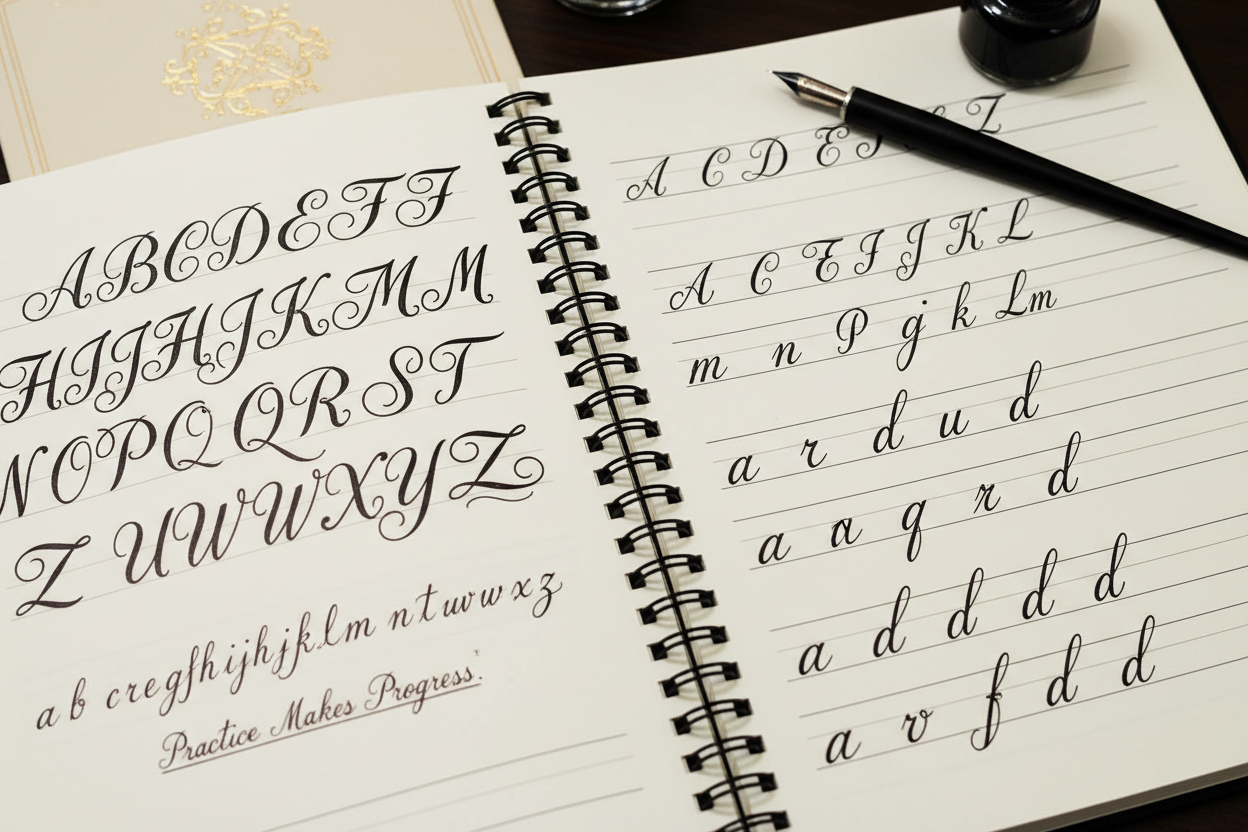 ABCDEFF
HIJJHJKMM
NOPQQRST
ZUWWXYZ
ab cregfhijhjklm ntuvwxz
Practice Makes Progress.
A C D E
A C E I J K L
m n P g k Lm
a r d u d
a a q r d
a d d d d
a v f d d